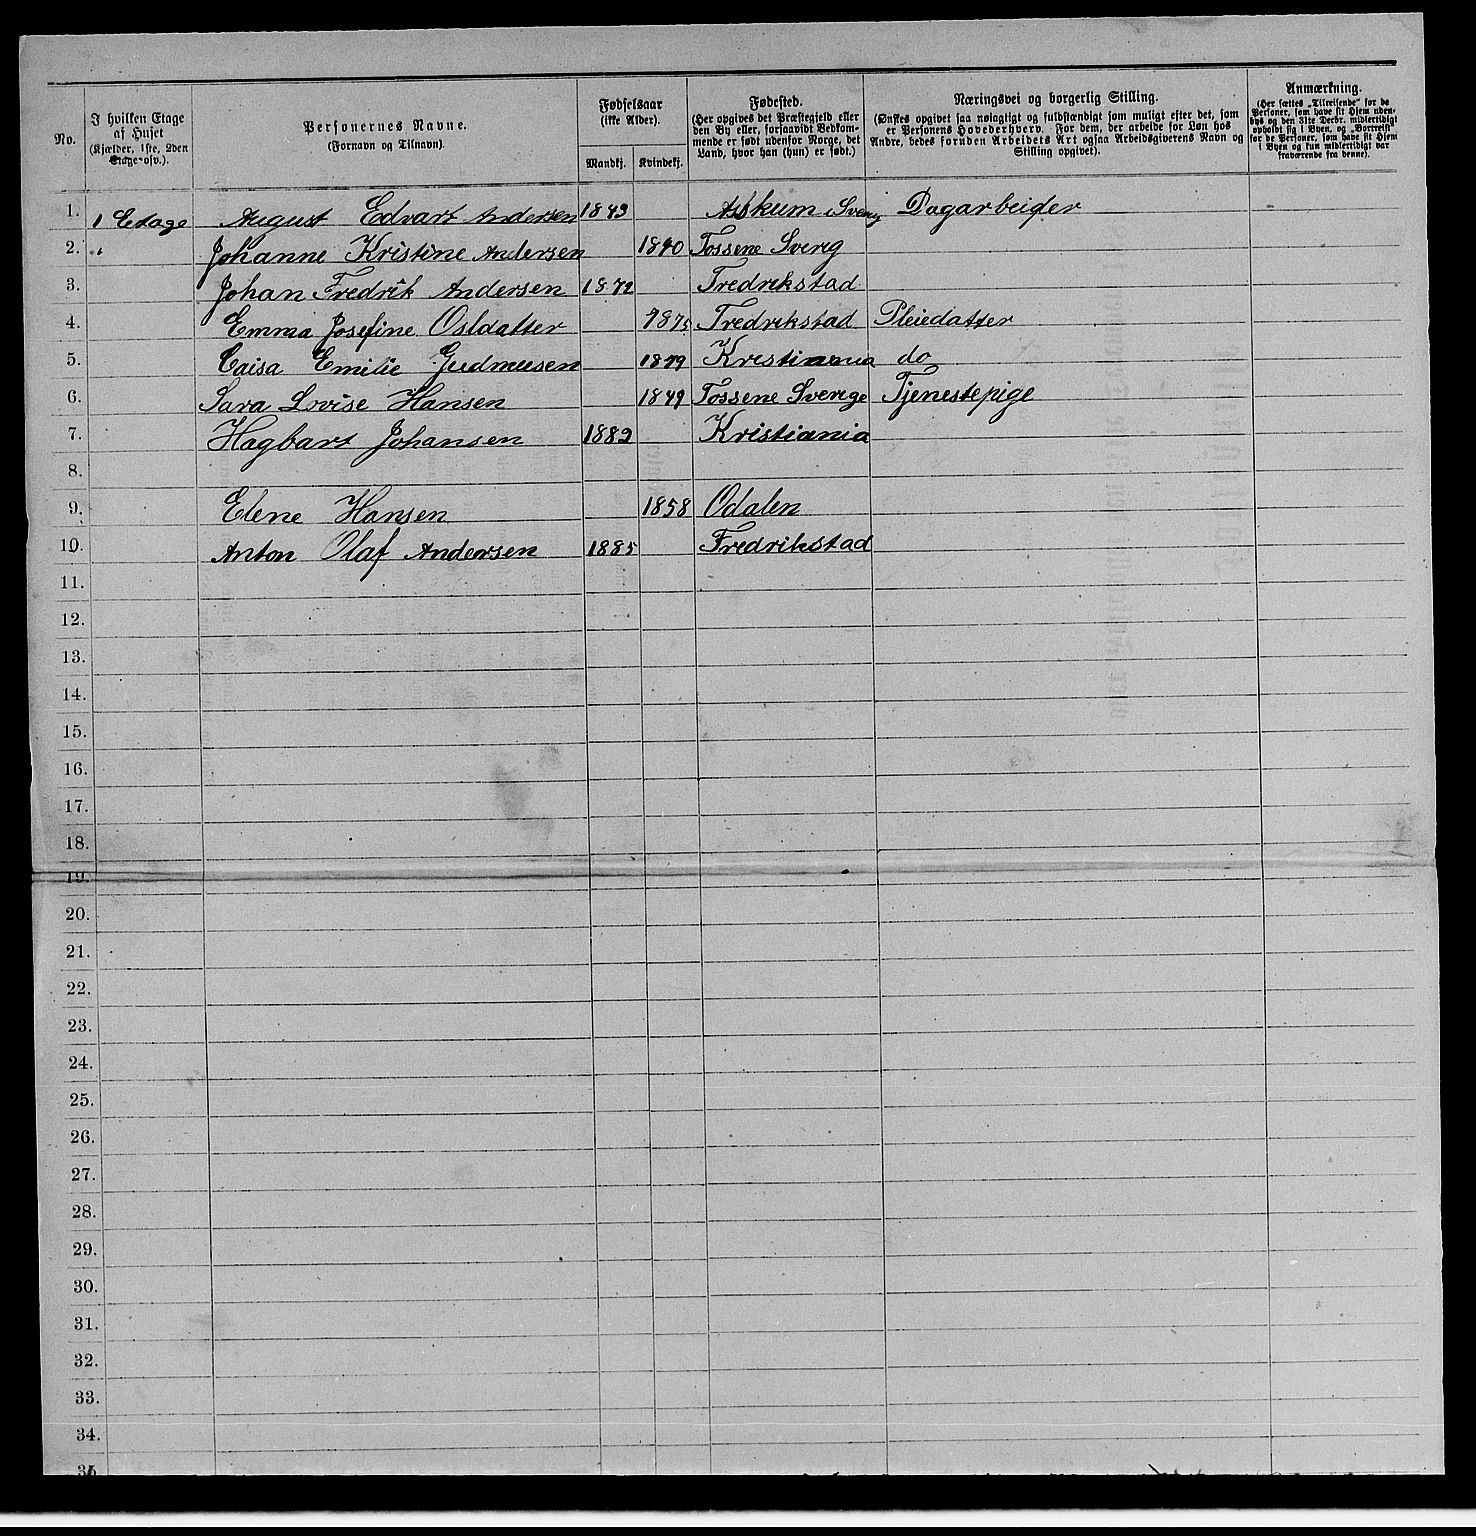 No.
I hvilken Etage af Huset (Kjælder, 1ste, 2den Etage osv.).
Personernes Navne. (Fornavn og Tilnavn).
Fødselsaar (ikke Alder).
Mandkj. Kvindekj.
Fødested. (Her opgives det Præstegjeld eller den By eller, forsaavidt Vedkommende er født udenfor Norge, det Land, hvor han (hun) er født.)
Næringsvei og borgerlig Stilling. (Ønskes opgivet saa nøiagtigt og fuldstændigt som muligt efter det, som er Personens Hovederhverv. For dem, der arbeide for Løn hos Andre, bedes foruden Arbeidets Art ogsaa Arbeidsgiverens Navn og Stilling opgivet).
Anmærkning. (Her sættes „Tilreisende“ for de Personer, som have sit Hjem udenbys og den 31te Decbr. midlertidigt opholdt sig i Byen, og „Bortreist“ for de Personer, som have sit Hjem i Byen og kun midlertidigt var fraværende fra denne).
1. 1 Etage August Edvart Andersen 1843 Askum Sverig Dagarbeider
2. Johanne Kristine Andersen 1840 Tossene Sverig
3. Johan Fredrik Andersen 1872 Fredrikstad
4. Emma Josefine Olsdatter 1875 Fredrikstad Pleiedatter
5. Caisa Emilie Gudmusen 1879 Kristiania do
6. Sara Lovise Hansen 1849 Tossene Sverige Tjenestepige
7. Hagbart Johansen 1882 Kristiania
8.
9. Elene Hansen 1858 Odalen
10. Anton Olaf Andersen 1885 Fredrikstad
11.
12.
13.
14.
15.
16.
17.
18.
19.
20.
21.
22.
23.
24.
25.
26.
27.
28.
29.
30.
31.
32.
33.
34.
35